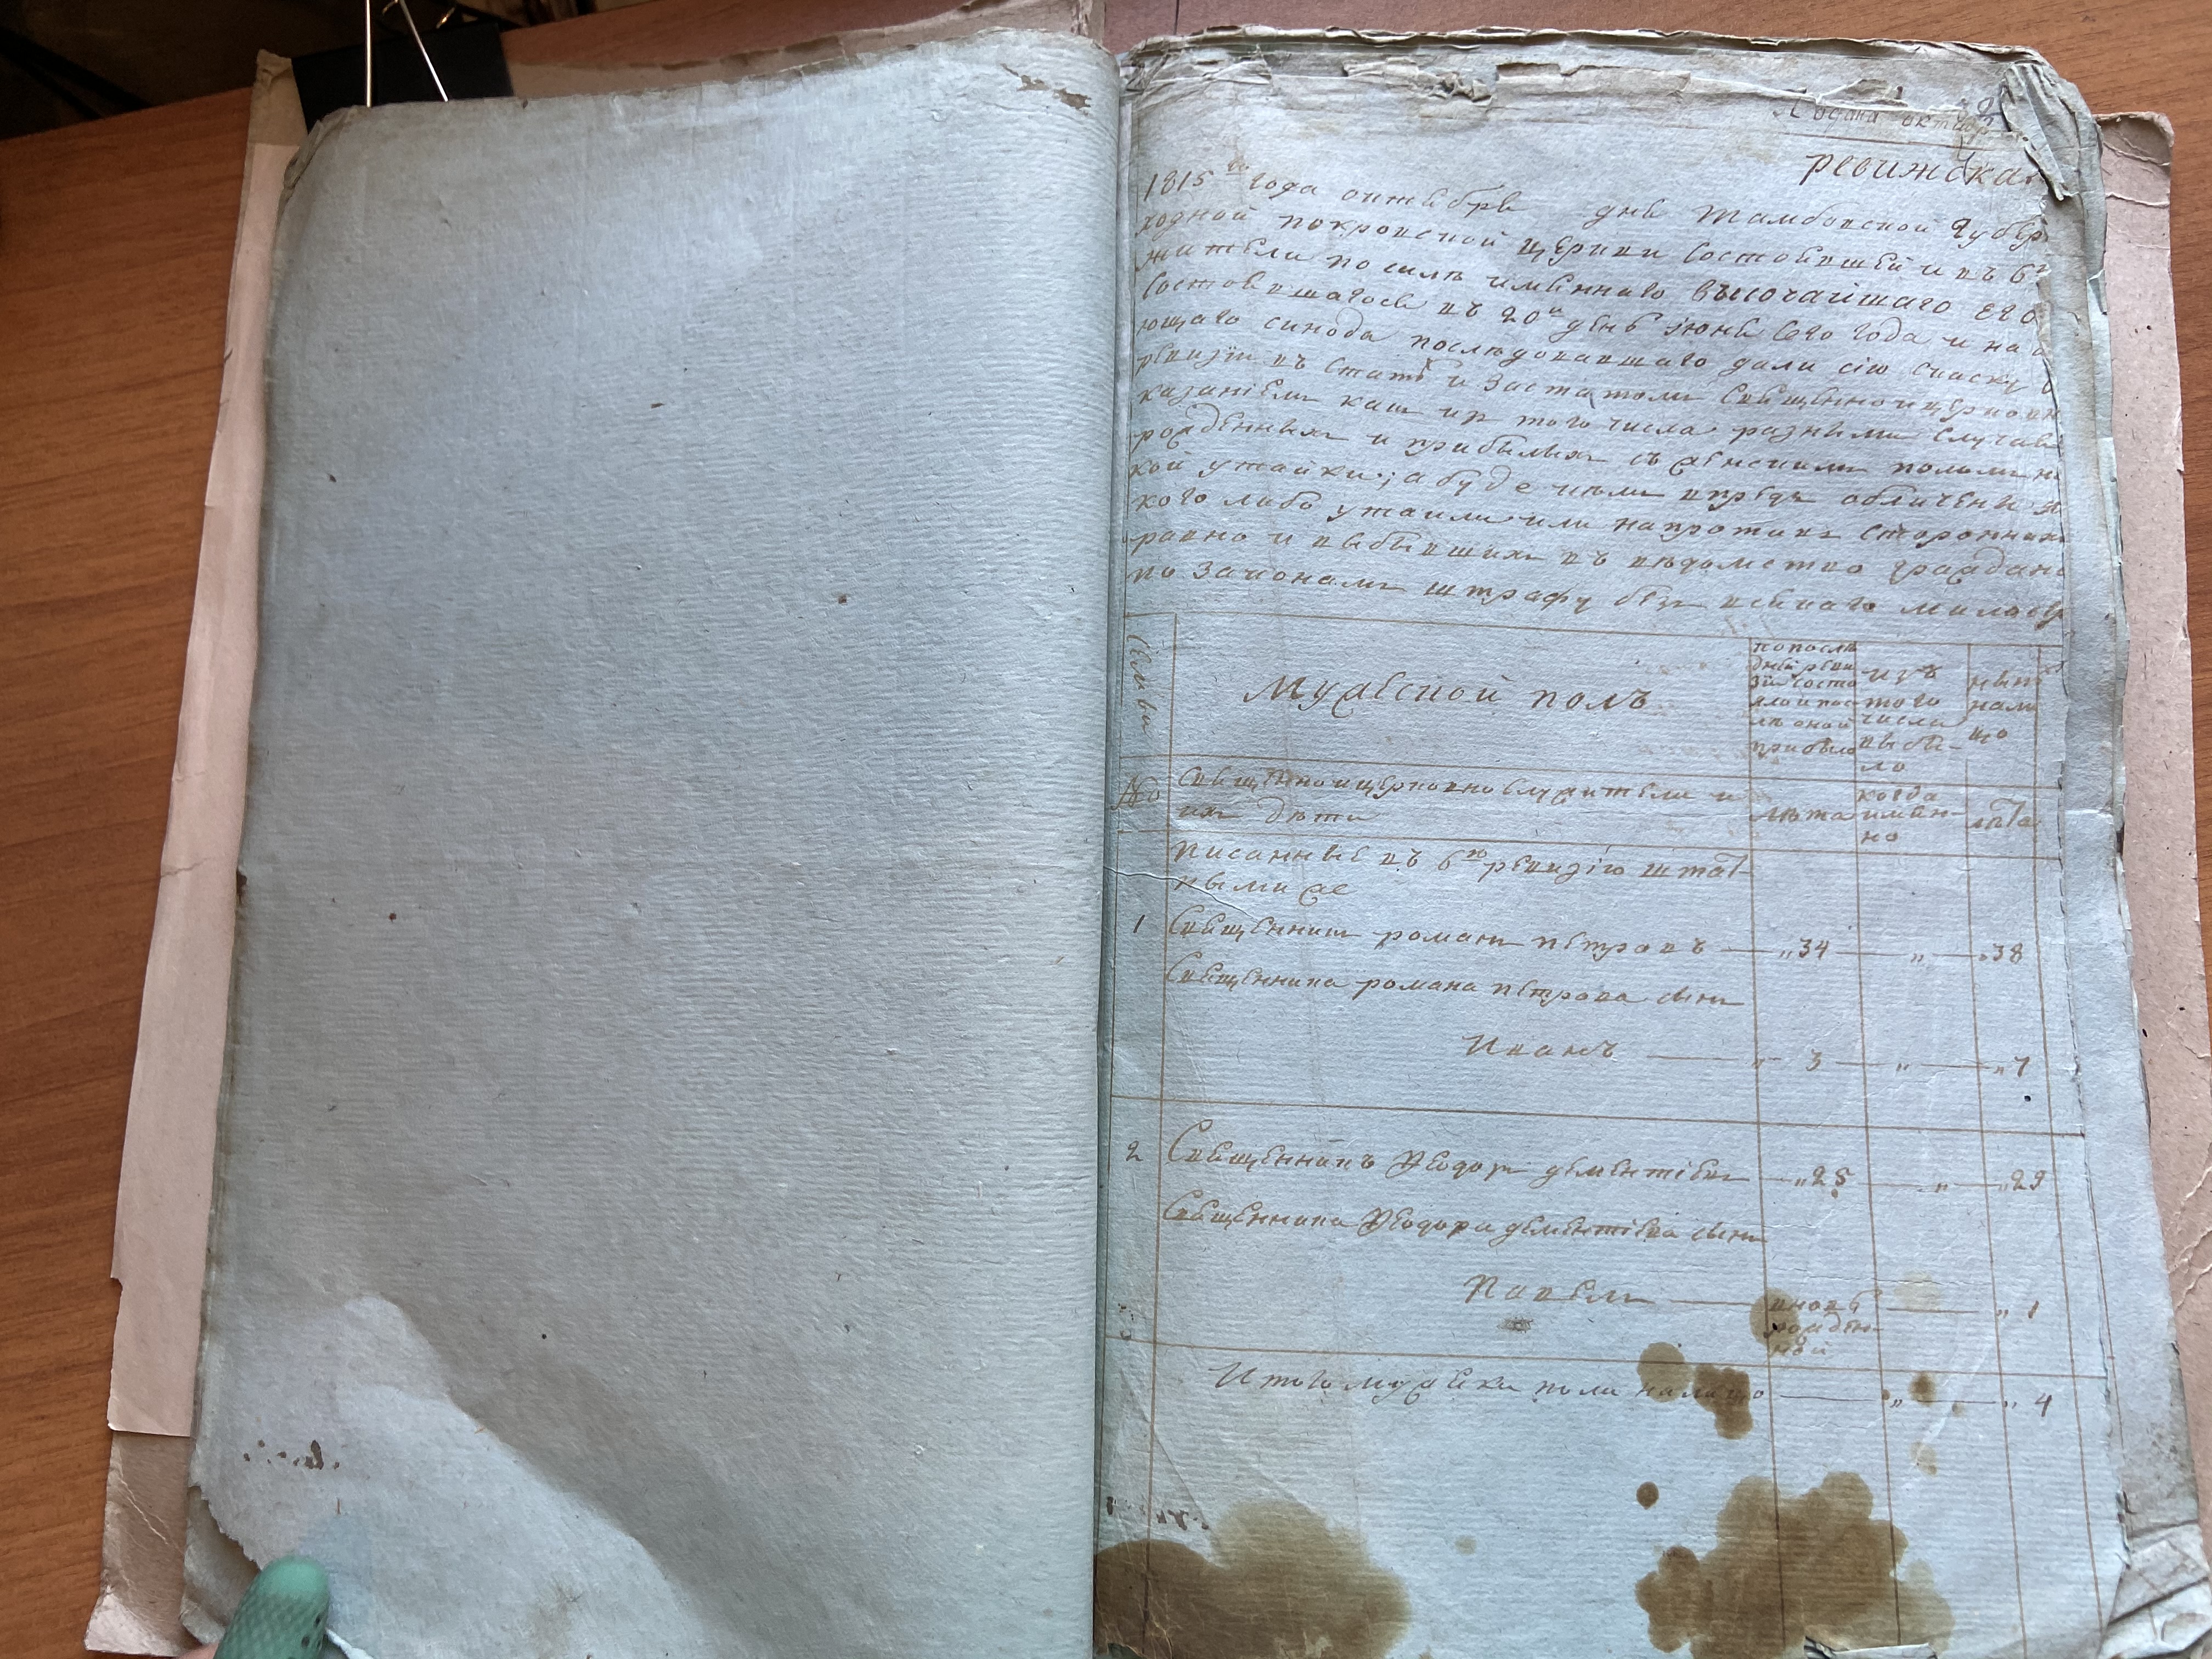 Подана октяб
ревижска
1815го года октября дня Тамбовской Губер
ходной покровской церкви состоявшей и въ 6й
жители по силѣ имѣннаго высочайшаго Его
состоявшагося въ 20й день июня сего года и на
ющаго синода послѣдовавшаго дали сию скаску
ревизии въ статѣ и за статомъ Священноицерковн
казаниемъ какъ из того числа разными случаи
рожденныхъ и прибылыхъ съ женскимъ поломъ н
кой утайки; а буде чемъ впредь обличены
кого либо утаили или на противъ сторонних
равно и выбывшихъ въ вѣдометво граждан
по законамъ штрафу безъ всякаго милосер
Семьи
Мужеской полъ
по послѣ
дней реви
зии состо
яло и пос
лѣ оной
прибыло
изъ
того
числа
выбы-
ло
нынѣ
нали
цо
№
Священноицерковнослужители и
их дѣти
лѣта
когда
имян-
но
лѣта
писанные въ 6ю ревизию штат
ными же
1 Священникъ романъ петровъ — „ 34 — „ — „ 38
Священника романа петрова сынъ
Иванъ — „ 3 — „ — „ 7
2 Священникъ Ѳеодоръ дементиевъ — „ 25 — „ — „ 29
Священника Ѳеодора дементиева сынъ
Павелъ — вновь — „ 1
рожден-
ной
Итого мужеска пола налицо — „ — „ 4